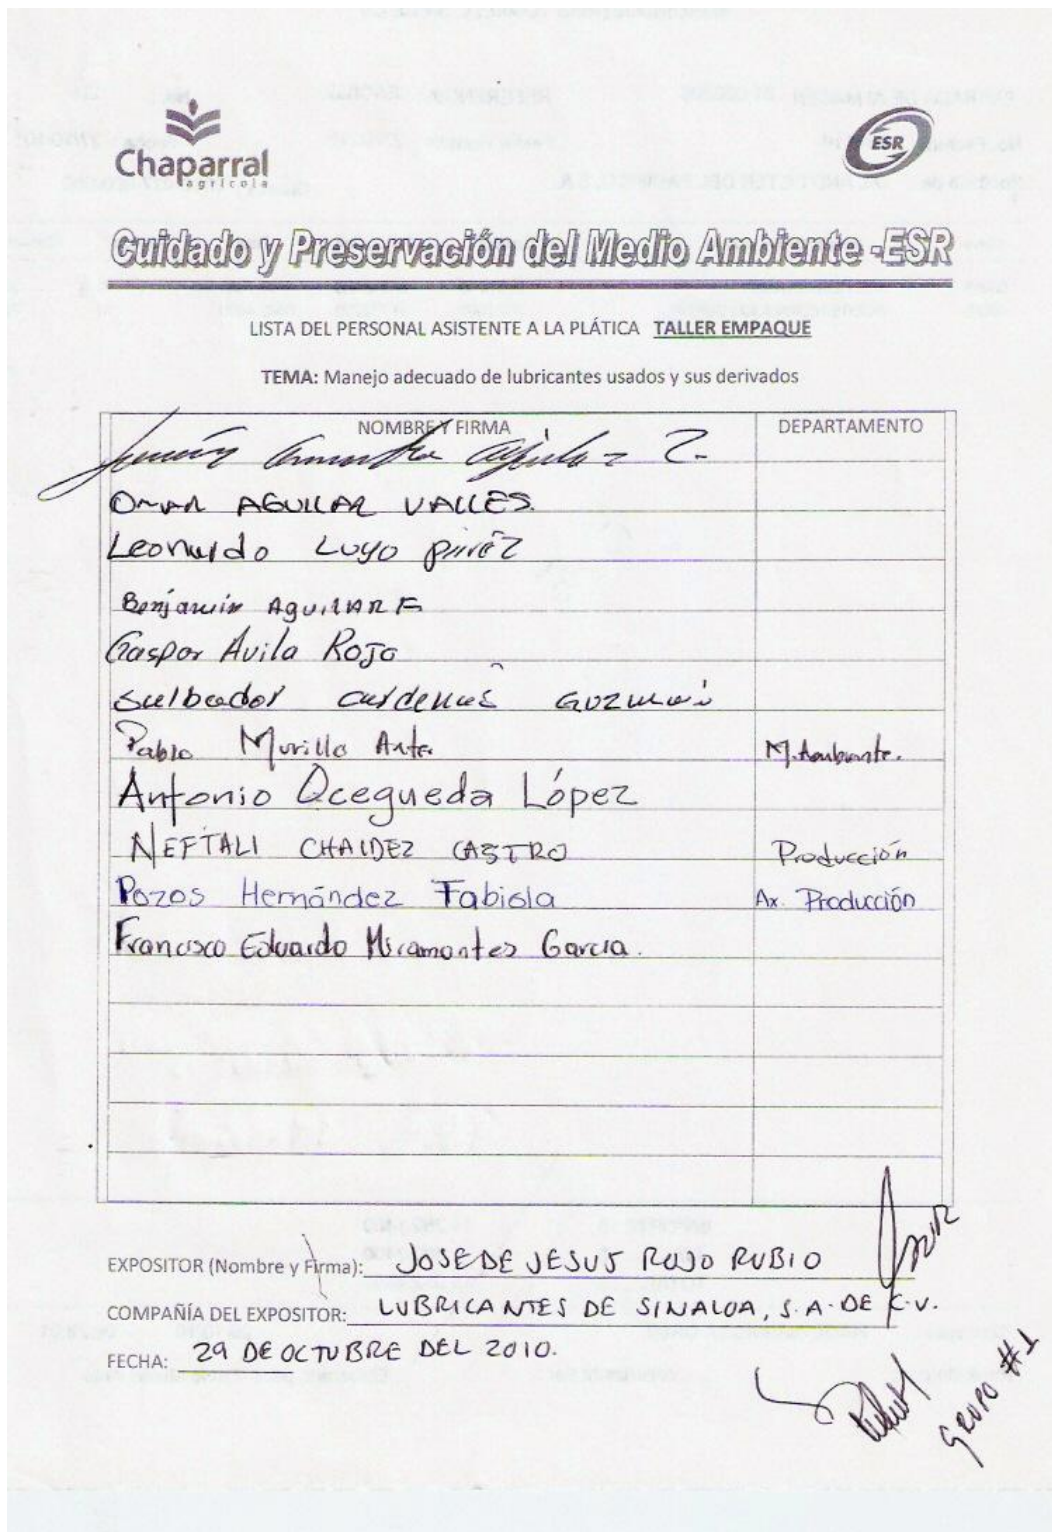 Chaparral
agrícola
ESR
Cuidado y Preservación del Medio Ambiente -ESR
LISTA DEL PERSONAL ASISTENTE A LA PLÁTICA TALLER EMPAQUE
TEMA: Manejo adecuado de lubricantes usados y sus derivados
NOMBRE Y FIRMA DEPARTAMENTO
OMAR AGUILAR VALLES.
Leonardo LUYO
Benjamin AGUILAR F
Gaspar Avila ROJO
Salbador cardenas GUZMán
Pablo Murillo Ante. M. Ambiente.
Antonio Ocegueda López
NEFTALI CHAIDEZ CASTRO Producción
Pozos Hernández Fabiola Ax. Producción
Francisco Eduardo Miramontes Garcia.
EXPOSITOR (Nombre y Firma): JOSE DE JESUS ROJO RUBIO
COMPAÑÍA DEL EXPOSITOR: LUBRICANTES DE SINALOA, S.A. DE C.V.
FECHA: 29 DE OCTUBRE DEL 2010.
GRUPO #1